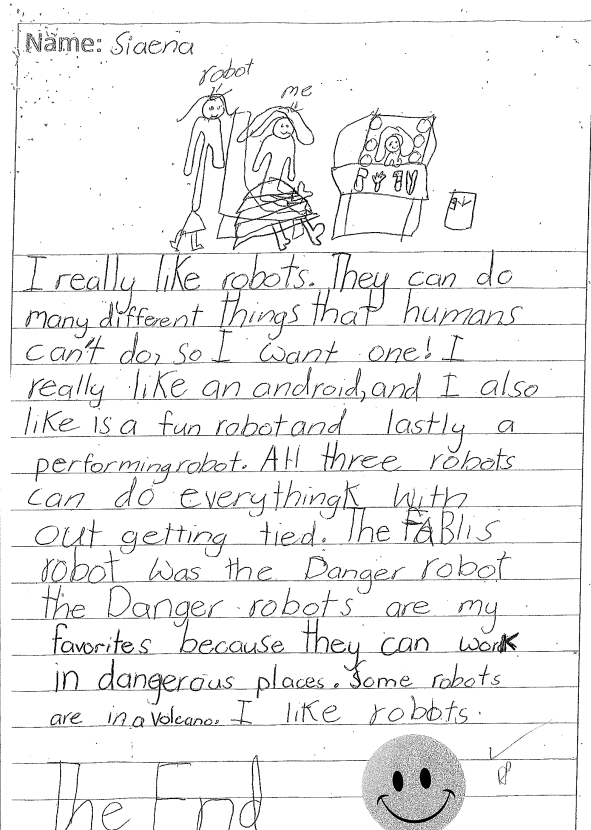 Name: Siaena
robot
me
I really like robots. They can do
many different things that humans
can't do, so I want one! I
really like an android, and I also
like is a fun robot and lastly a
performing robot. All three robots
can do everythingk with
out getting tied. The FABlis
robot was the Danger robot
the Danger robots are my
favorites because they can work
in dangerous places. Some robots
are in a volcano. I like robots.
The End